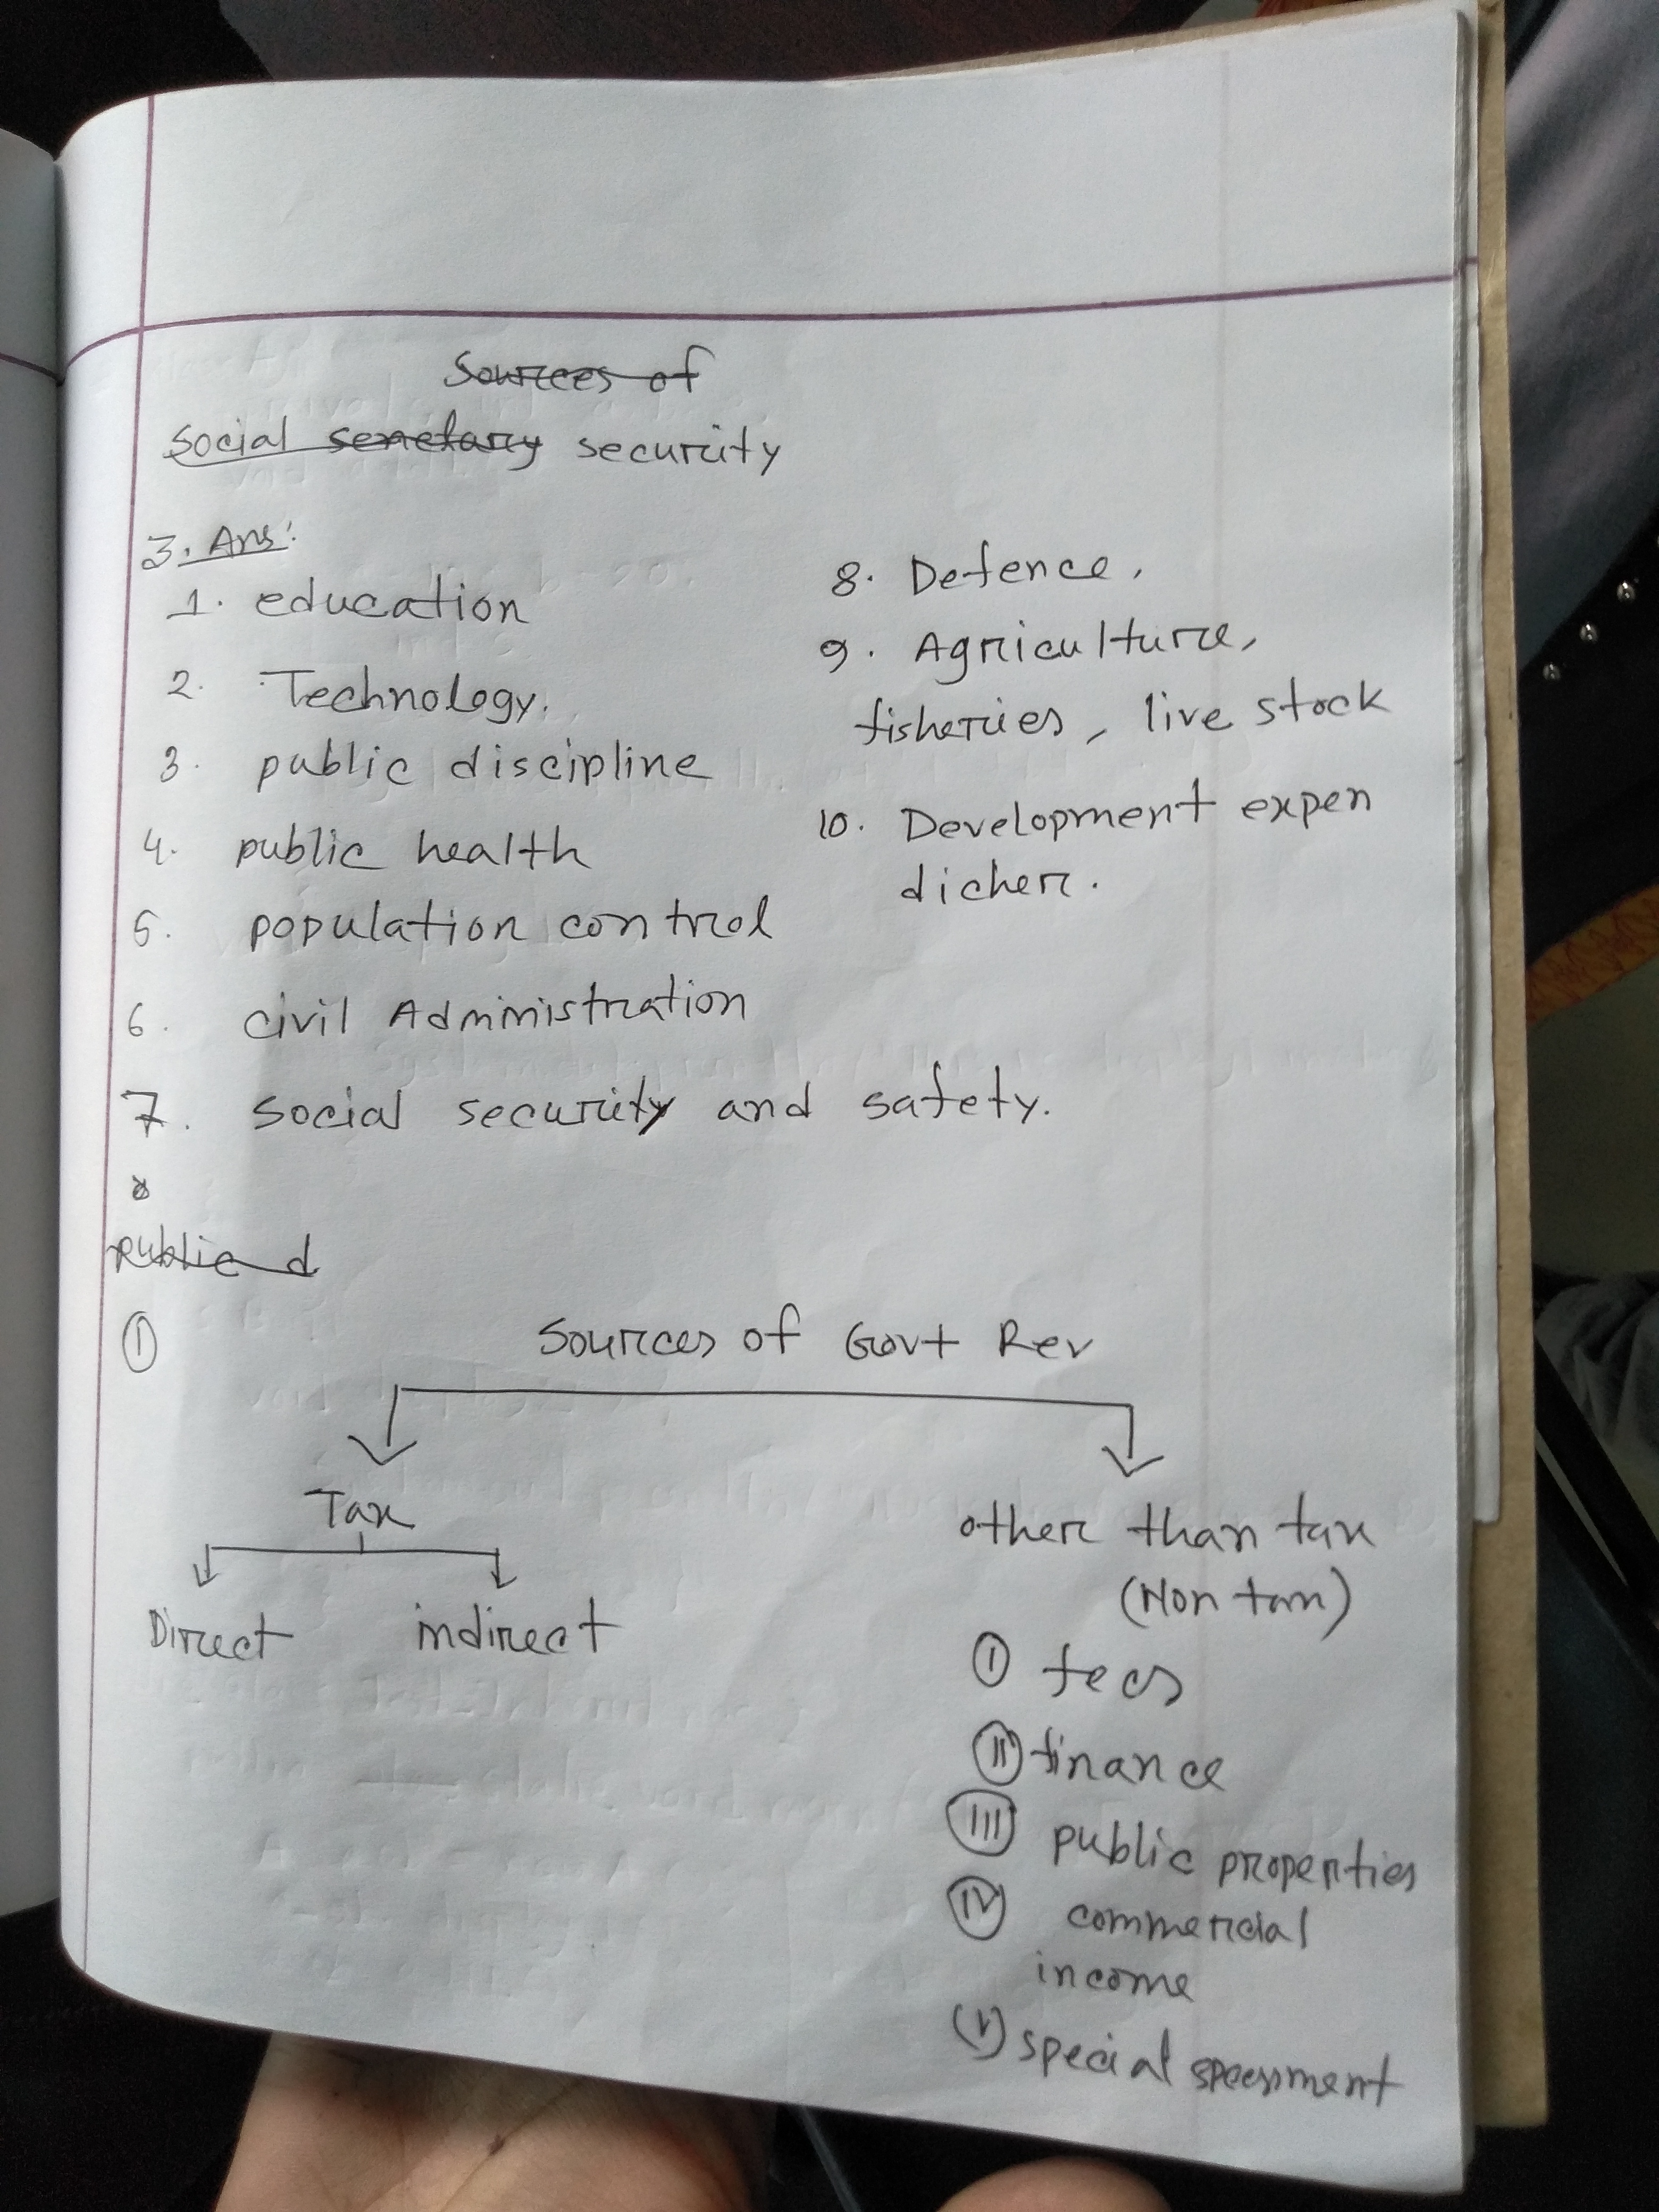 Sources of
Social senetary security
3. Ans:
1. education
2. Technology.
3. public discipline
4. public health
5. population control
6. civil Administration
7. social security and safety.
8. Defence,
9. Agriculture,
fisheries, live stock
10. Development expen
dicher.
Public d
① Sources of Govt Rev
Tax
Direct indirect
other than tax
(Non tax)
① fees
② finance
③ public properties
④ commercial
income
(v) special speessment